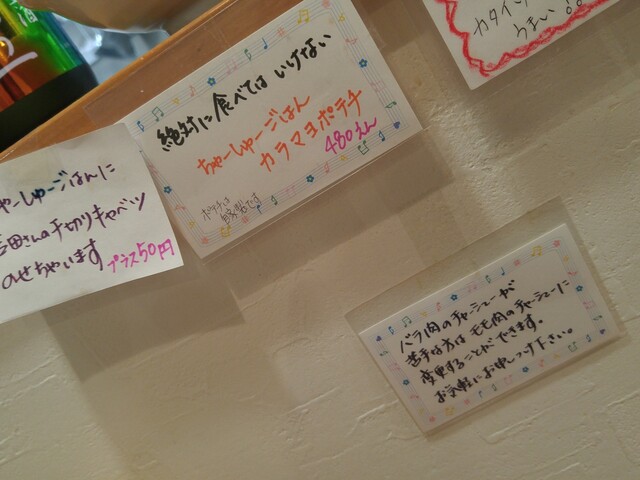 絶対に食べてはいけない
ちゃーしゅーごはん
カラマヨポテチ
480えん
ポテチは
自家製です
ゃーしゅーごはんに
田さんの千切りキャベツ
のせちゃいます
プラス50円
カタイ
うまい
バラ肉のチャーシューが
苦手な方はモモ肉のチャーシューに
変更することができます。
お気軽にお申しつけ下さい。